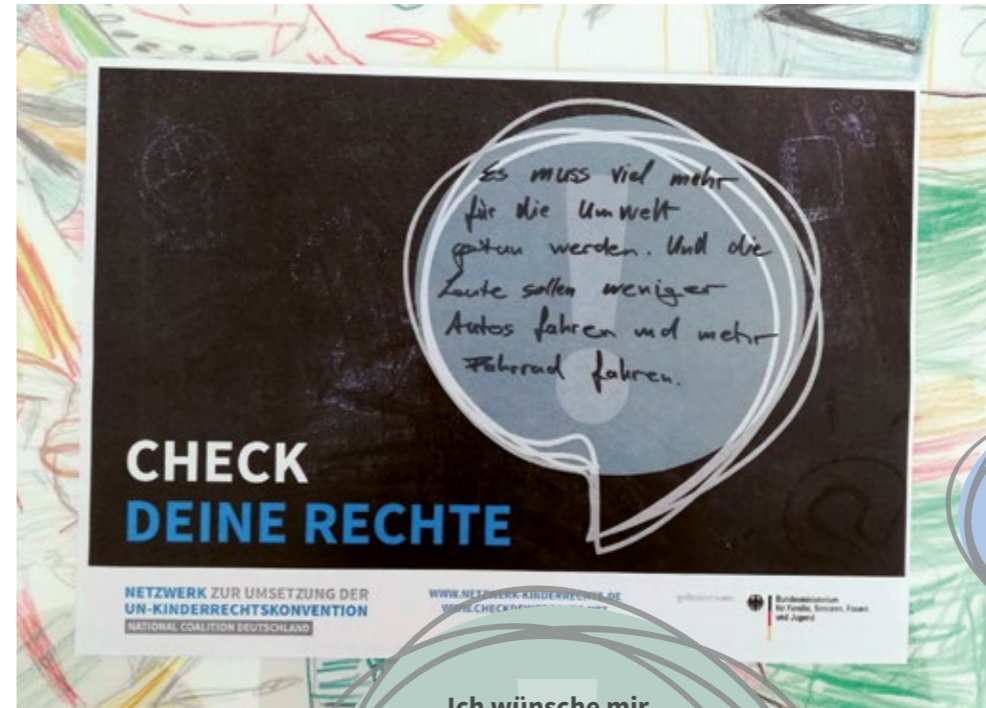 Es muss viel mehr
für die Umwelt
getan werden. Und die
Leute sollen weniger
Autos fahren und mehr
Fahrrad fahren.
CHECK
DEINE RECHTE
NETZWERK ZUR UMSETZUNG DER
UN-KINDERRECHTSKONVENTION
NATIONAL COALITION DEUTSCHLAND
WWW.NETZWERK-KINDERRECHTE.DE
gefördert vom:
Bundesministerium
für Familie, Senioren, Frauen
und Jugend
Ich wünsche mir